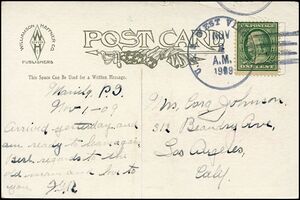 WILLIAMSON-HAFFNER CO.
PUBLISHERS
POST CARD
This Space Can Be Used for a Written Message.
Manila, P.I.
Nov-1-09
Arrived yesterday and
am ready to leave again.
Best regards to the
old man and love to
you.
U.S.S. WEST
NOV
A.M.
1909
ONE CENT
Johnson,
312 Ave,
Los Angeles,
Caly.